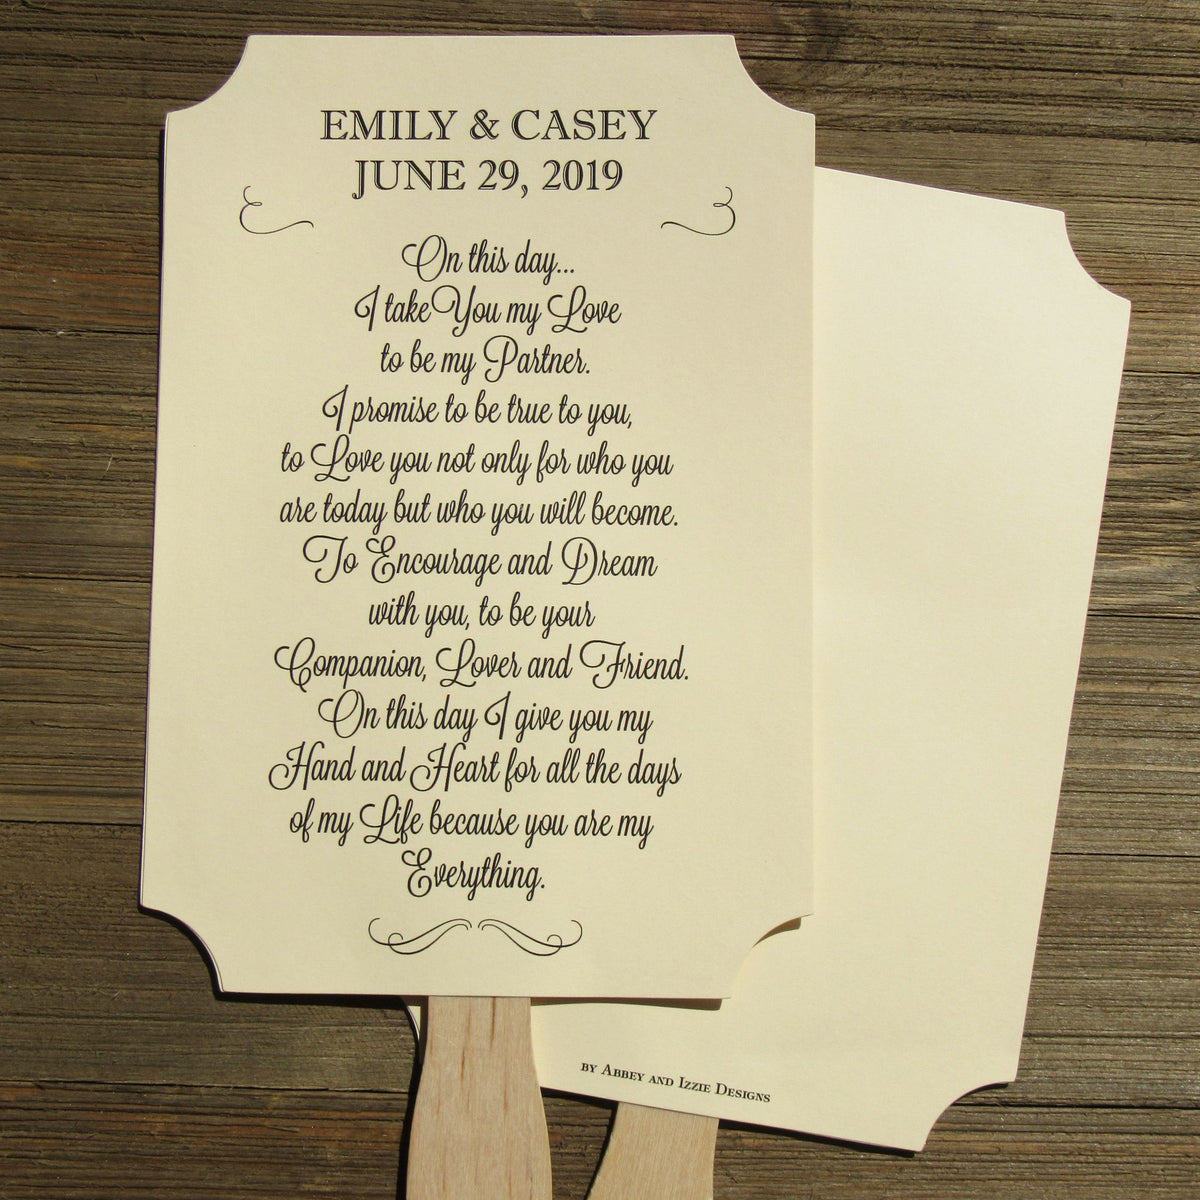 EMILY & CASEY
JUNE 29, 2019
On this day...
I take You my Love
to be my Partner.
I promise to be true to you,
to Love you not only for who you
are today but who you will become.
To Encourage and Dream
with you, to be your
Companion, Lover and Friend.
On this day I give you my
Hand and Heart for all the days
of my Life because you are my
Everything.
BY ABBEY AND IZZIE DESIGNS